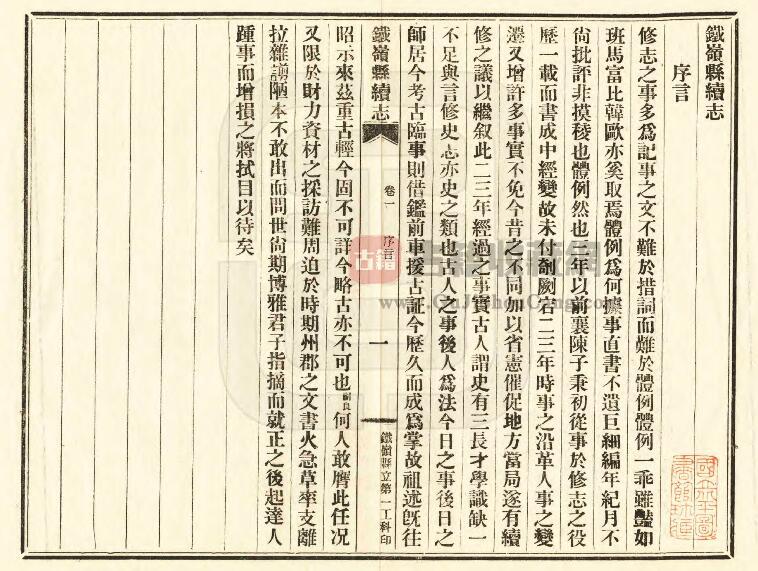 鐵嶺縣續志
序言
修志之事多爲記事之文不難於措詞而難於體例體例一乖雖豔如
班馬富比韓歐亦奚取焉體例爲何據事直書不遺巨細編年紀月不
尙批評非摸稜也體例然也三年以前襄陳子秉初從事於修志之役
歷一載而書成中經變故未付剞劂宕二三年時事之沿革人事之變
遷又增許多事實不免今昔之不同加以省憲催促地方當局遂有續
修之議以繼叙此二三年經過之事實古人謂史有三長才學識缺一
不足與言修史志亦史之類也古人之事後人爲法今日之事後日之
師居今考古臨事則借鑑前車援古証今歷久而成爲掌故祖述旣往
鐵嶺縣續志
卷一
序言
一
鐵嶺縣立第一工科印
昭示來茲重古輕今固不可詳今略古亦不可也嗣良何人敢膺此任况
又限於財力資材之採訪難周迫於時期州郡之文書火急草率支離
拉雜謭陋本不敢出而問世尙期博雅君子指摘而就正之後起達人
踵事而增損之將拭目以待矣
古籍